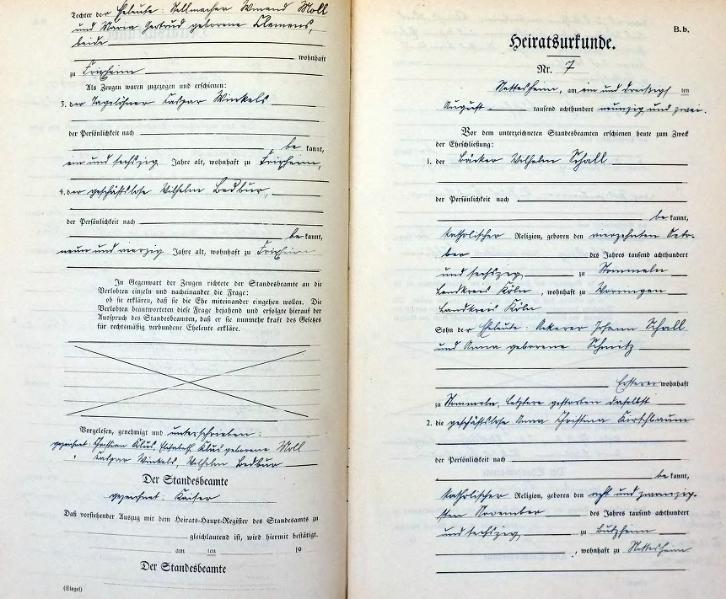 Tochter der Eheleute: Sellmacher Winand Moll
und Maria Gertrud geborene Clemens,
beide
wohnhaft
zu Frixheim
Als Zeugen waren zugezogen und erschienen:
3. der Tagelöhner Caspar Winkels
der Persönlichkeit nach
be kannt,
ein und sechszig Jahre alt, wohnhaft zu Frixheim,
4. der geschäftslose Wilhelm Bedbur,
der Persönlichkeit nach
be kannt,
neun und vierzig Jahre alt, wohnhaft zu Frixheim
In Gegenwart der Zeugen richtete der Standesbeamte an die
Verlobten einzeln und nacheinander die Frage:
ob sie erklären, daß sie die Ehe miteinander eingehen wollen. Die
Verlobten beantworteten diese Frage bejahend und erfolgte hierauf der
Ausspruch des Standesbeamten, daß er sie nunmehr kraft des Gesetzes
für rechtmäßig verbundene Eheleute erkläre.
Vorgelesen, genehmigt und unterschrieben:
gezeichnet: Christian Klüs, Elisabeth Klüs geborene Moll
" Caspar Winkels, Wilhelm Bedbur
Der Standesbeamte
gezeichnet: Kaiser
Daß vorstehender Auszug mit dem Heirats-Haupt-Register des Standesamts zu
gleichlautend ist, wird hiermit bestätigt.
am ten 19
Der Standesbeamte
(Siegel)
B.b.
Heiratsurkunde.
Nr. 7
Nettesheim, am ein und dreißigs ten
August tausend achthundert neunzig und zwei.
Vor dem unterzeichneten Standesbeamten erschienen heute zum Zweck
der Eheschließung:
1. der Bäcker Wilhelm Schall
der Persönlichkeit nach
be kannt,
katholischer Religion, geboren den vierzehnten Octo-
ber des Jahres tausend achthundert
und sechszig, zu Sommeln
Landkreis Köln, wohnhaft zu Worringen
Landkreis Köln
Sohn der Eheleute: Ackerer Johann Schall
und Anna geborene Schmitz
Ersterer wohnhaft
zu Sommeln, Letztere gestorben daselbst
2. die geschäftslose Anna Christina Kirschbaum
der Persönlichkeit nach
be kannt,
katholischer Religion, geboren den acht und zwanzig-
sten November des Jahres tausend achthundert
und sechszig, zu Bützheim
, wohnhaft zu Nettesheim